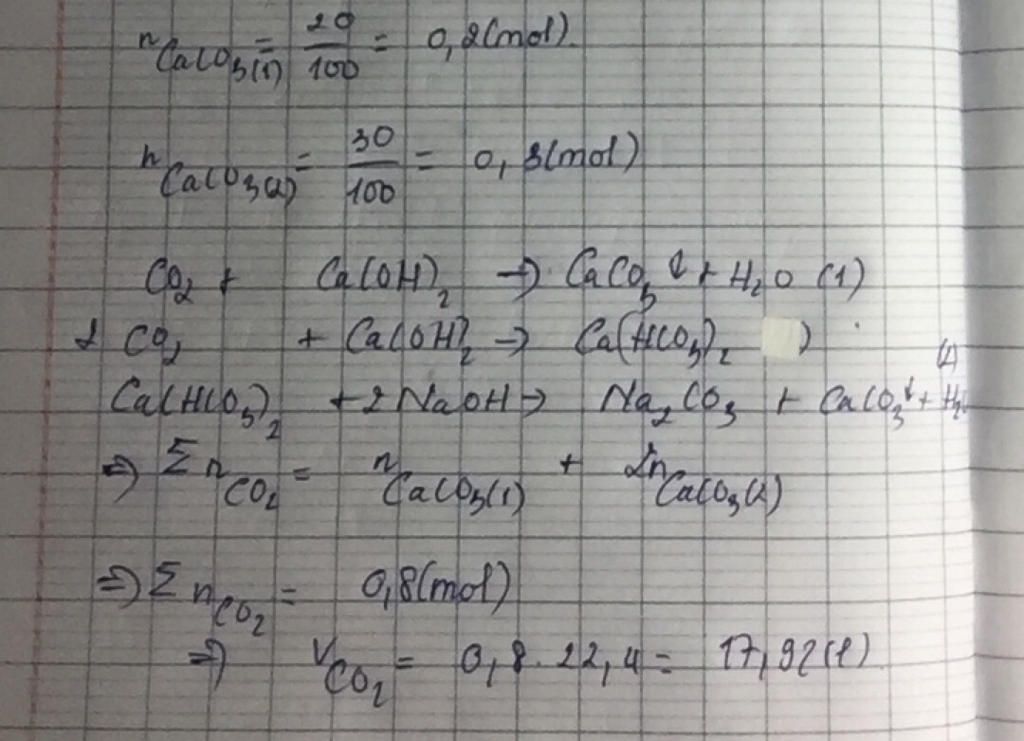 nCaCO3(1) = 20/100 = 0,2(mol)
nCaCO3(2) = 30/100 = 0,3(mol)
CO2 + Ca(OH)2 → CaCO3↓ + H2O (1)
2 CO2 + Ca(OH)2 → Ca(HCO3)2 )
(2)
Ca(HCO3)2 + 2NaOH → Na2CO3 + CaCO3↓ + H2
⇒ Σ nCO2 = nCaCO3(1) + 2nCaCO3(2)
⇒ Σ nCO2 = 0,8(mol)
⇒ VCO2 = 0,8.22,4 = 17,92(l)